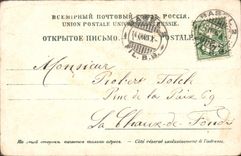 ВСЕМІРНЫЙ ПОЧТОВЫЙ СОЮЗЪ. РОССІЯ.
UNION POSTALE UNIVERSELLE. RUSSIE.
ОТКРЫТОЕ ПИСЬМО. POSTALE
Monsieur
Robert
Rue de la Paix 69
La Chaux-de-Fonds
На этой сторонѣ пишется только адресъ. — Côté réservé exclusivement à l'adresse.